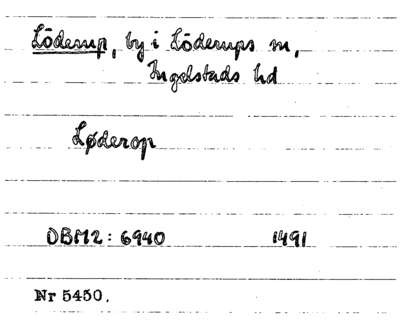 Löderup, by i Löderups sn,
Ingelstads hd
Løderop
DBM2: 6940 1491
Nr 5450.